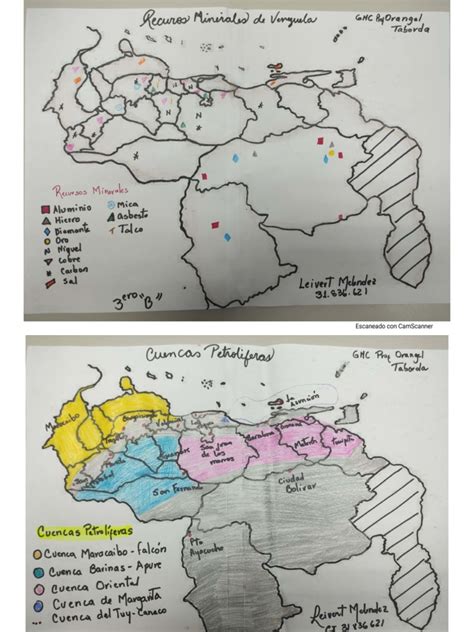 Recuros Minerales de Venzuela
GHC Prof Orangel
Taborda
Recursos Minerales
Aluminio
Hierro
Diamante
Oro
Niquel
Cobre
Carbon
Sal
Mica
Asbesto
Talco
N
N
N
3ero "B"
Leivert Melendez
31.836.621
Escaneado con CamScanner
Cuencas Petroliferas
GHC Prof Orangel
Taborda
la Asunción
Maracaibo
Barcelona
Maturín
San Juan
de los
morros
San Fernando
Ciudad
Bolivar
Pto
Ayacucho
Cuencas Petroliferas
Cuenca Maracaibo - Falcón
Cuenca Barinas - Apure
Cuenca Oriental
Cuenca de Margarita
Cuenca del Tuy - Cariaco
Leivert Melendez
31836621